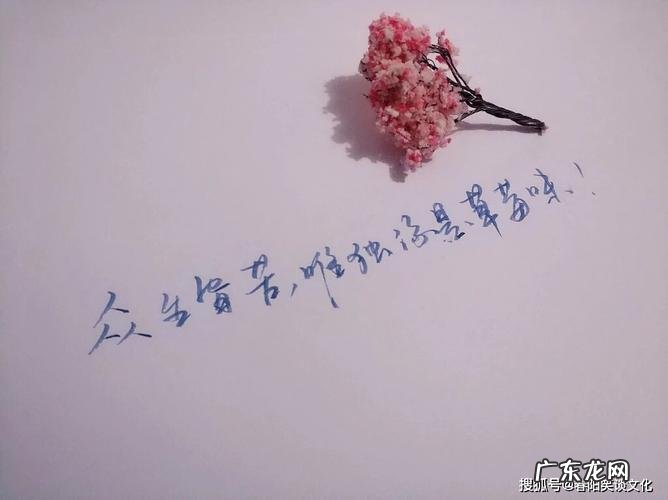 众生皆苦,唯独你是草莓味!
广东龙网
搜狐号@春阳 谈文化